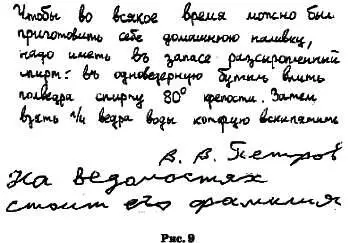 Чтобы во всякое время можно был
приготовить себе домашнюю наливку,
надо иметь въ запасе разсиропленный
спирт: въ одноведерную бутыль влить
полведра спирту 80° крепости. Затем
взять 1/4 ведра воды которую вскипятить
В. В. Петров
На ведомостях
стоит его фамилия
Рис. 9